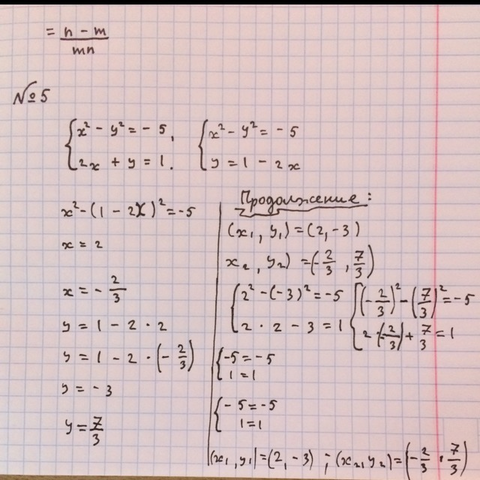 = n - m / mn
№ 5
{ x² - y² = - 5,
2x + y = 1.
{ x² - y² = - 5
y = 1 - 2x
x² - (1 - 2x)² = -5
x = 2
x = - 2/3
y = 1 - 2 · 2
y = 1 - 2 · (- 2/3)
y = - 3
y = 7/3
Продолжение:
(x₁, y₁) = (2, -3)
x₂, y₂) = (- 2/3, 7/3)
{ 2² - (-3)² = -5
2 · 2 - 3 = 1
{ (- 2/3)² - (7/3)² = -5
2 · (- 2/3) + 7/3 = 1
{ -5 = -5
1 = 1
{ - 5 = -5
1 = 1
(x₁, y₁) = (2, -3) ; (x₂, y₂) = (- 2/3, 7/3)